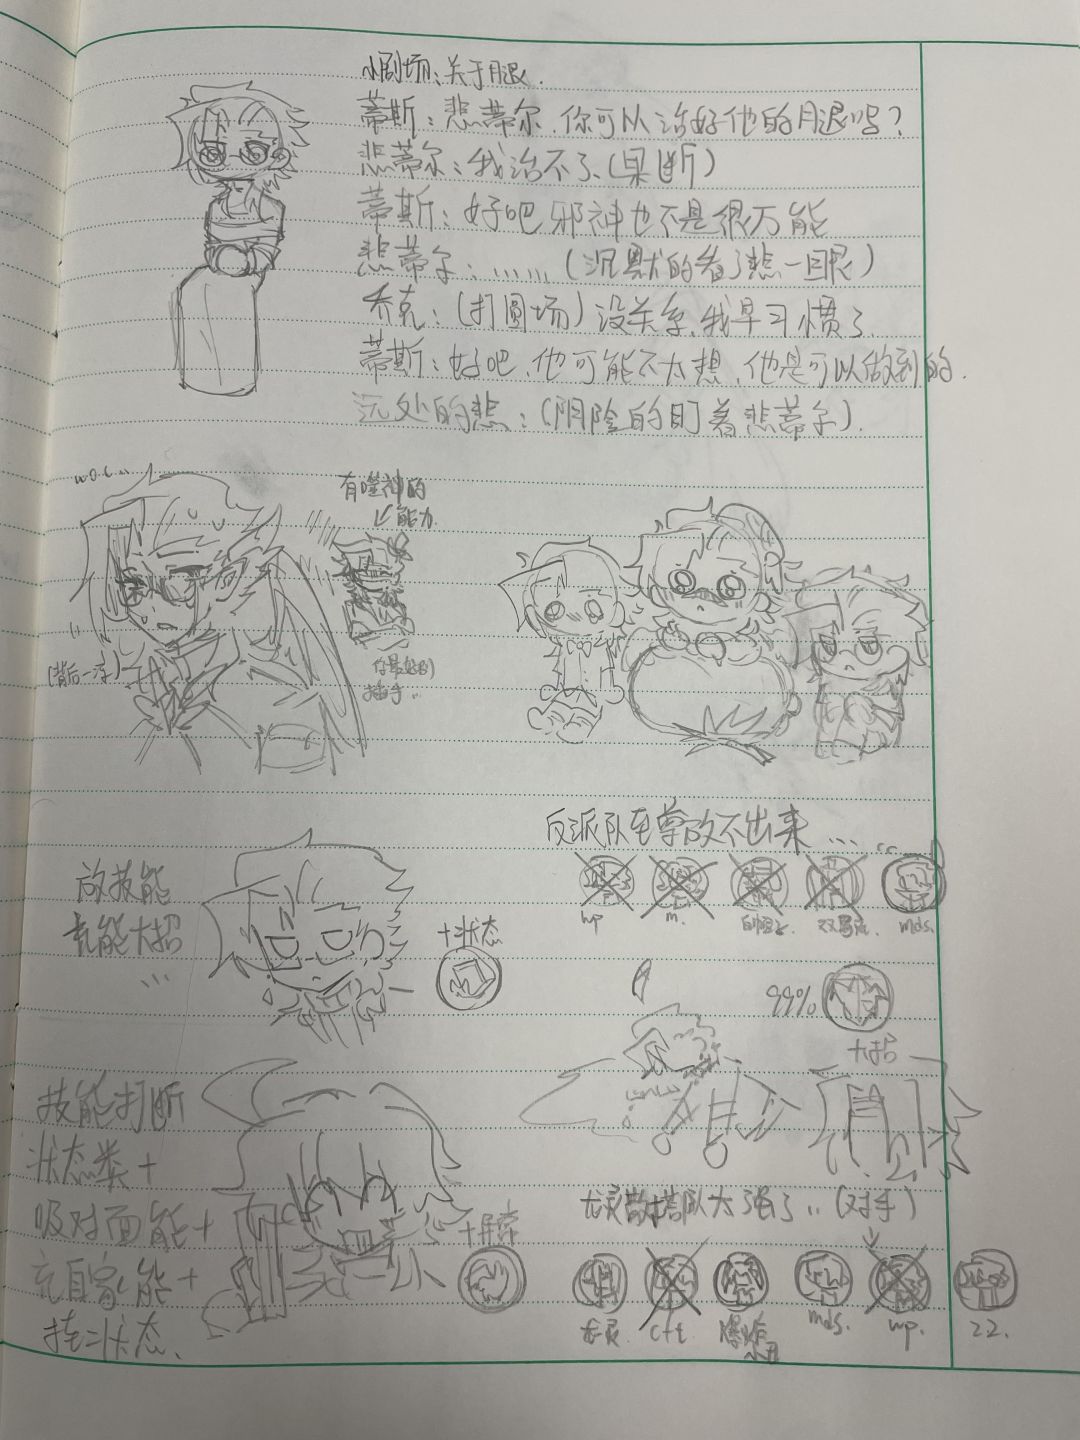 小剧场：关于腿.
蒂斯：悲蒂尔，你可以治好他的腿吗？
悲蒂尔：我治不了、(果断)
蒂斯：好吧 邪神也不是很万能
悲蒂尔：……(沉默的看了悲一眼)
乔克：(打圆场)没关系，我早习惯了.
蒂斯：好吧，他可能不太想，他是可以做到的.
远处的悲：(阴险的盯着悲蒂尔).
w.o.c...
有噬神的
能力.
(背后一凉)
你最好别
插手..
反派队至尊放不出来……
放技能
充能大招
...
+状态
wp
m.
mds.
99%
+招
技能打断
状态类+
吸对面能+
充自家能+
挂状态.
+屏幕
太强了..(对手)
cft
爆炸
小丑
mds.
wp.
22.